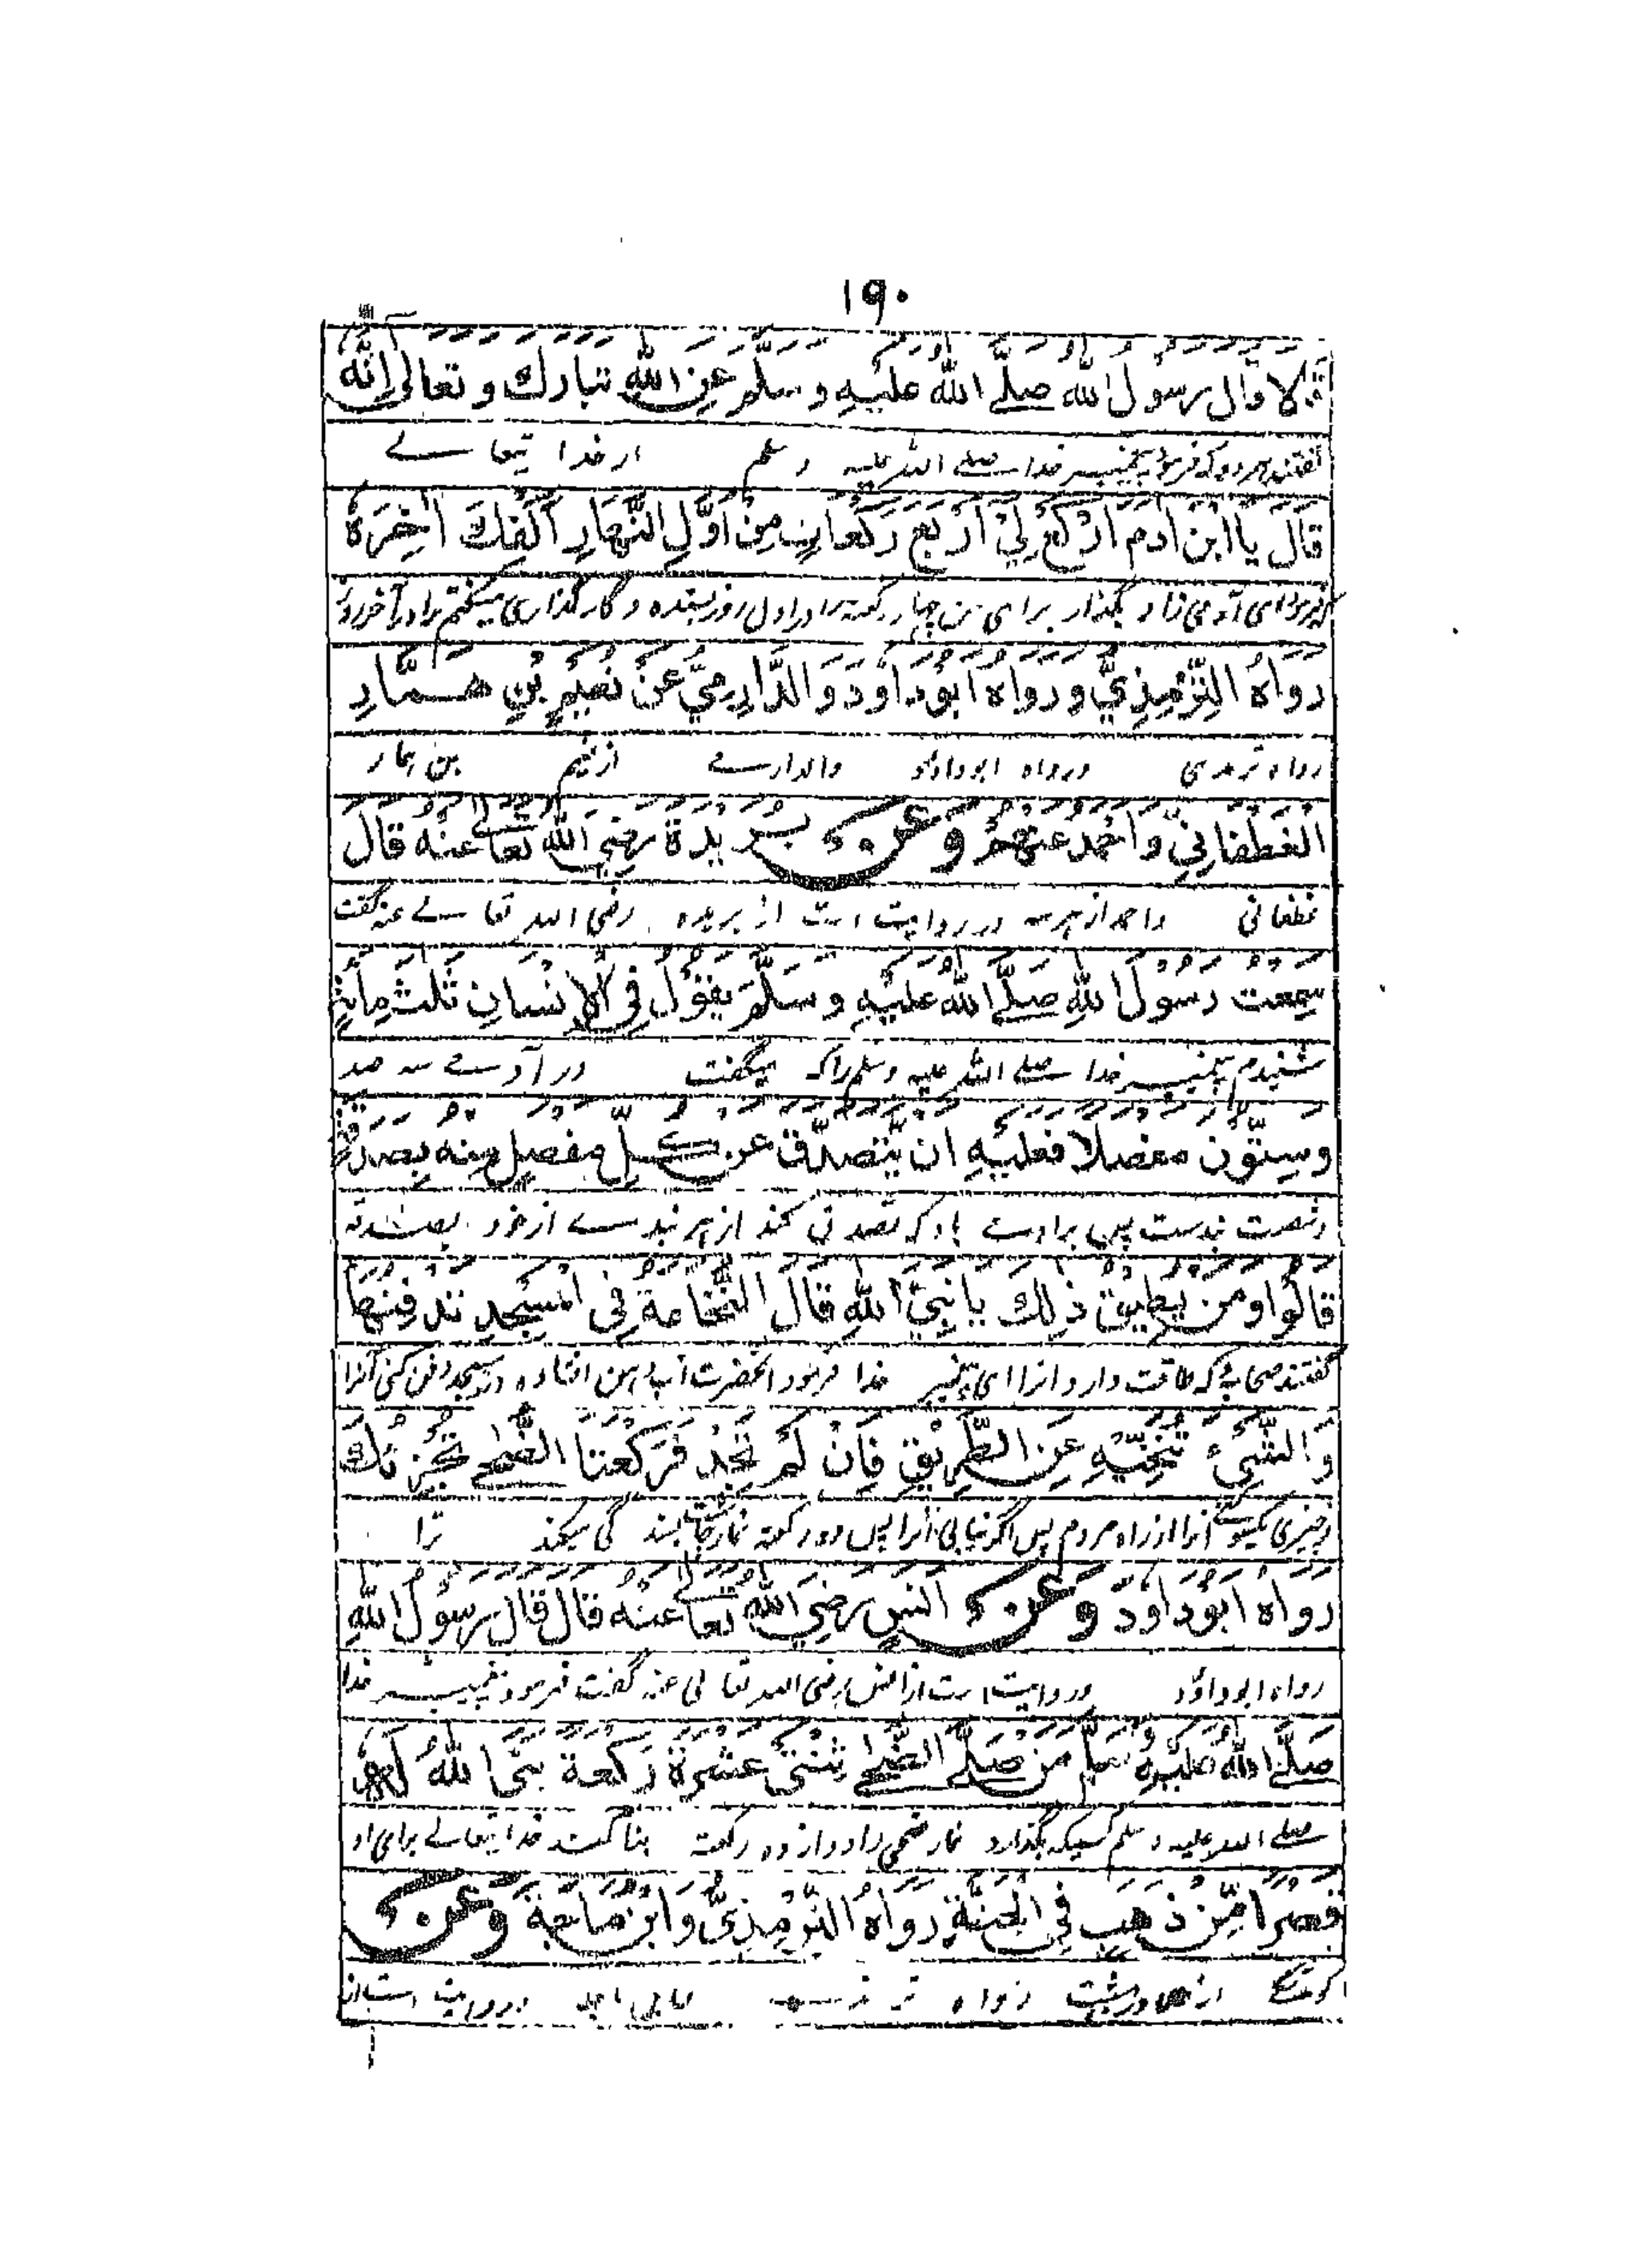 ۱۹۰
قالا قال رسول الله صلے الله عليه وسلم عن الله تبارك و تعالى انه
گفتند هر دو که فرمود پیغمبر خدا صلے الله علیه وسلم از خدا تیعالے
قَالَ يا ابن ادم اركع لي اربع ركعات من اول النهار اكفك اٰخِرَهُ
فرمود ای آدمی زاد بگذار برای من چهار رکعت را در اول روز بسنده و کارگذاری میکنم ترا در آخر روز
رواه الترمذي و رواه ابوداود والدارمي عن نعيم بن همار
رواه ترمذی ورواه ابوداؤد والدارمے از نعیم بن همار
الغطفاني و احمد عنهم وعن بريدة رضي الله تعالے عنه قال
غطفانی واحمد از هر سه و روایت است از بریده رضی الله تعالے عنه گفت
سمعت رسول الله صلے الله عليه وسلم يقول في الانسان ثلث مائة
شنیدم پیغمبر خدا صلے الله علیه وسلم را که میگفت در آدمے سه صد
وستون مفصلا فعليه ان يتصدق عن كل مفصل منه بصدقة
وشصت بندست پس بر اوست که تصدق کند از هر بندے از خود بصدقه
قالوا ومن يطيق ذلك يا نبي الله قال النخاعة في المسجد تدفنها
گفتند صحابه که طاقت دارد انرا ای پیغمبر خدا فرمود انحضرت آب دهن افتاده در مسجد دفن کنی آنرا
والشيء تنحيه عن الطريق فان لم تجد فركعتا الضحے تجزئك
وچیزی یکسو کنے انرا از راه مردم پس اگر نیابی انرا پس دو رکعت نماز چاشت بسندگی میکند ترا
رواه ابوداود وعن انس رضي الله تعالے عنه قال قال رسول الله
رواه ابوداؤد و روایت است از انس رضی الله تعالی عنه گفت فرمود پیغمبر خدا
صلے الله عليه وسلم من صلے الضحے ثنتي عشرة ركعة بنى الله له
صلے الله علیه وسلم کسیکه بگذارد نماز ضحی را دوازده رکعت بنا کند خدا تیعالے برای او
قصرا من ذهب في الجنة رواه الترمذي وابن ماجة وعن
کوشکے از طلا در بهشت رواه ترمذے ابن ماجه و روایت است از